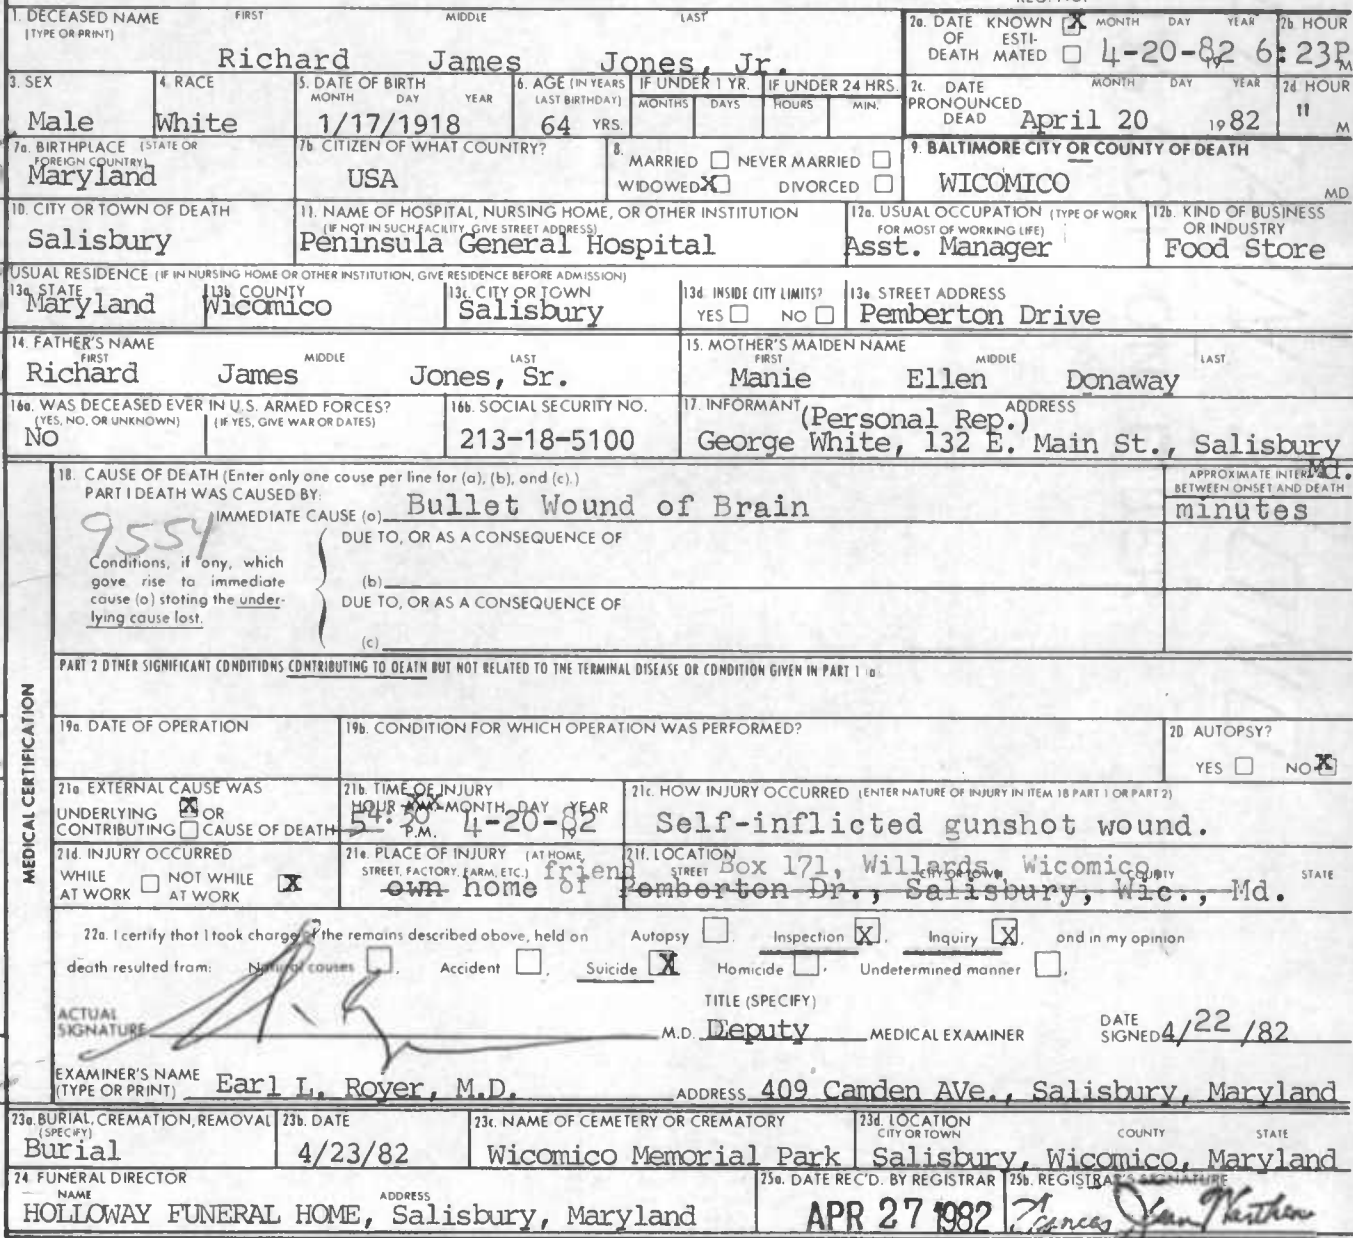 1. DECEASED NAME (TYPE OR PRINT) FIRST MIDDLE LAST
Richard James Jones, Jr.
2a. DATE OF DEATH KNOWN X ESTIMATED MONTH DAY YEAR 4-20-82 19
2b HOUR 6:23P M
3. SEX Male
4. RACE White
5. DATE OF BIRTH MONTH DAY YEAR 1/17/1918
6. AGE (IN YEARS LAST BIRTHDAY) 64 YRS.
IF UNDER 1 YR. MONTHS DAYS
IF UNDER 24 HRS. HOURS MIN.
2c. DATE PRONOUNCED DEAD MONTH DAY YEAR April 20 1982
2d HOUR " M
7a. BIRTHPLACE (STATE OR FOREIGN COUNTRY) Maryland
7b. CITIZEN OF WHAT COUNTRY? USA
8. MARRIED NEVER MARRIED WIDOWED X DIVORCED
9. BALTIMORE CITY OR COUNTY OF DEATH WICOMICO MD.
10. CITY OR TOWN OF DEATH Salisbury
11. NAME OF HOSPITAL, NURSING HOME, OR OTHER INSTITUTION (IF NOT IN SUCH FACILITY, GIVE STREET ADDRESS) Peninsula General Hospital
12a. USUAL OCCUPATION (TYPE OF WORK FOR MOST OF WORKING LIFE) Asst. Manager
12b. KIND OF BUSINESS OR INDUSTRY Food Store
USUAL RESIDENCE (IF IN NURSING HOME OR OTHER INSTITUTION, GIVE RESIDENCE BEFORE ADMISSION)
13a. STATE Maryland
13b COUNTY Wicomico
13c. CITY OR TOWN Salisbury
13d INSIDE CITY LIMITS? YES NO
13e STREET ADDRESS Pemberton Drive
14. FATHER'S NAME FIRST MIDDLE LAST
Richard James Jones, Sr.
15. MOTHER'S MAIDEN NAME FIRST MIDDLE LAST
Manie Ellen Donaway
16a. WAS DECEASED EVER IN U.S. ARMED FORCES? (YES, NO, OR UNKNOWN) (IF YES, GIVE WAR OR DATES) No
16b. SOCIAL SECURITY NO. 213-18-5100
17. INFORMANT (Personal Rep.) ADDRESS
George White, 132 E. Main St., Salisbury Md.
18. CAUSE OF DEATH (Enter only one couse per line for (a), (b), and (c).)
PART I DEATH WAS CAUSED BY:
IMMEDIATE CAUSE (a) Bullet Wound of Brain
APPROXIMATE INTERVAL BETWEEN ONSET AND DEATH
minutes
9554
DUE TO, OR AS A CONSEQUENCE OF
Conditions, if any, which gove rise to immediate cause (a) stoting the under-lying cause lost.
(b)
DUE TO, OR AS A CONSEQUENCE OF
(c)
PART 2 OTHER SIGNIFICANT CONDITIONS CONTRIBUTING TO DEATH BUT NOT RELATED TO THE TERMINAL DISEASE OR CONDITION GIVEN IN PART 1 a
MEDICAL CERTIFICATION
19a. DATE OF OPERATION
19b. CONDITION FOR WHICH OPERATION WAS PERFORMED?
20 AUTOPSY? YES NO X
21a EXTERNAL CAUSE WAS
UNDERLYING X OR
CONTRIBUTING CAUSE OF DEATH
21b. TIME OF INJURY
HOUR MONTH DAY YEAR
5 4:30 P.M. 4-20-82 19
21c. HOW INJURY OCCURRED (ENTER NATURE OF INJURY IN ITEM 18 PART 1 OR PART 2)
Self-inflicted gunshot wound.
21d. INJURY OCCURRED
WHILE AT WORK NOT WHILE AT WORK X
21e. PLACE OF INJURY (AT HOME, STREET, FACTORY, FARM, ETC.) friend
own home of
21f. LOCATION STREET CITY OR TOWN COUNTY STATE
Box 171, Willards, Wicomico,
Pemberton Dr., Salisbury, Wic., Md.
22a. I certify that I took charge of the remains described above, held on Autopsy , Inspection X , Inquiry X , and in my opinion
death resulted from: Natural causes , Accident , Suicide X Homicide , Undetermined manner .
ACTUAL SIGNATURE M.D.
TITLE (SPECIFY) Deputy MEDICAL EXAMINER
DATE SIGNED 4/22/82
EXAMINER'S NAME (TYPE OR PRINT) Earl L. Royer, M.D.
ADDRESS 409 Camden AVe., Salisbury, Maryland
23a. BURIAL, CREMATION, REMOVAL (SPECIFY) Burial
23b. DATE 4/23/82
23c. NAME OF CEMETERY OR CREMATORY Wicomico Memorial Park
23d. LOCATION CITY OR TOWN COUNTY STATE
Salisbury, Wicomico, Maryland
24 FUNERAL DIRECTOR NAME ADDRESS
HOLLOWAY FUNERAL HOME, Salisbury, Maryland
25a. DATE REC'D. BY REGISTRAR APR 27 1982
25b. REGISTRAR'S SIGNATURE Frances Jean